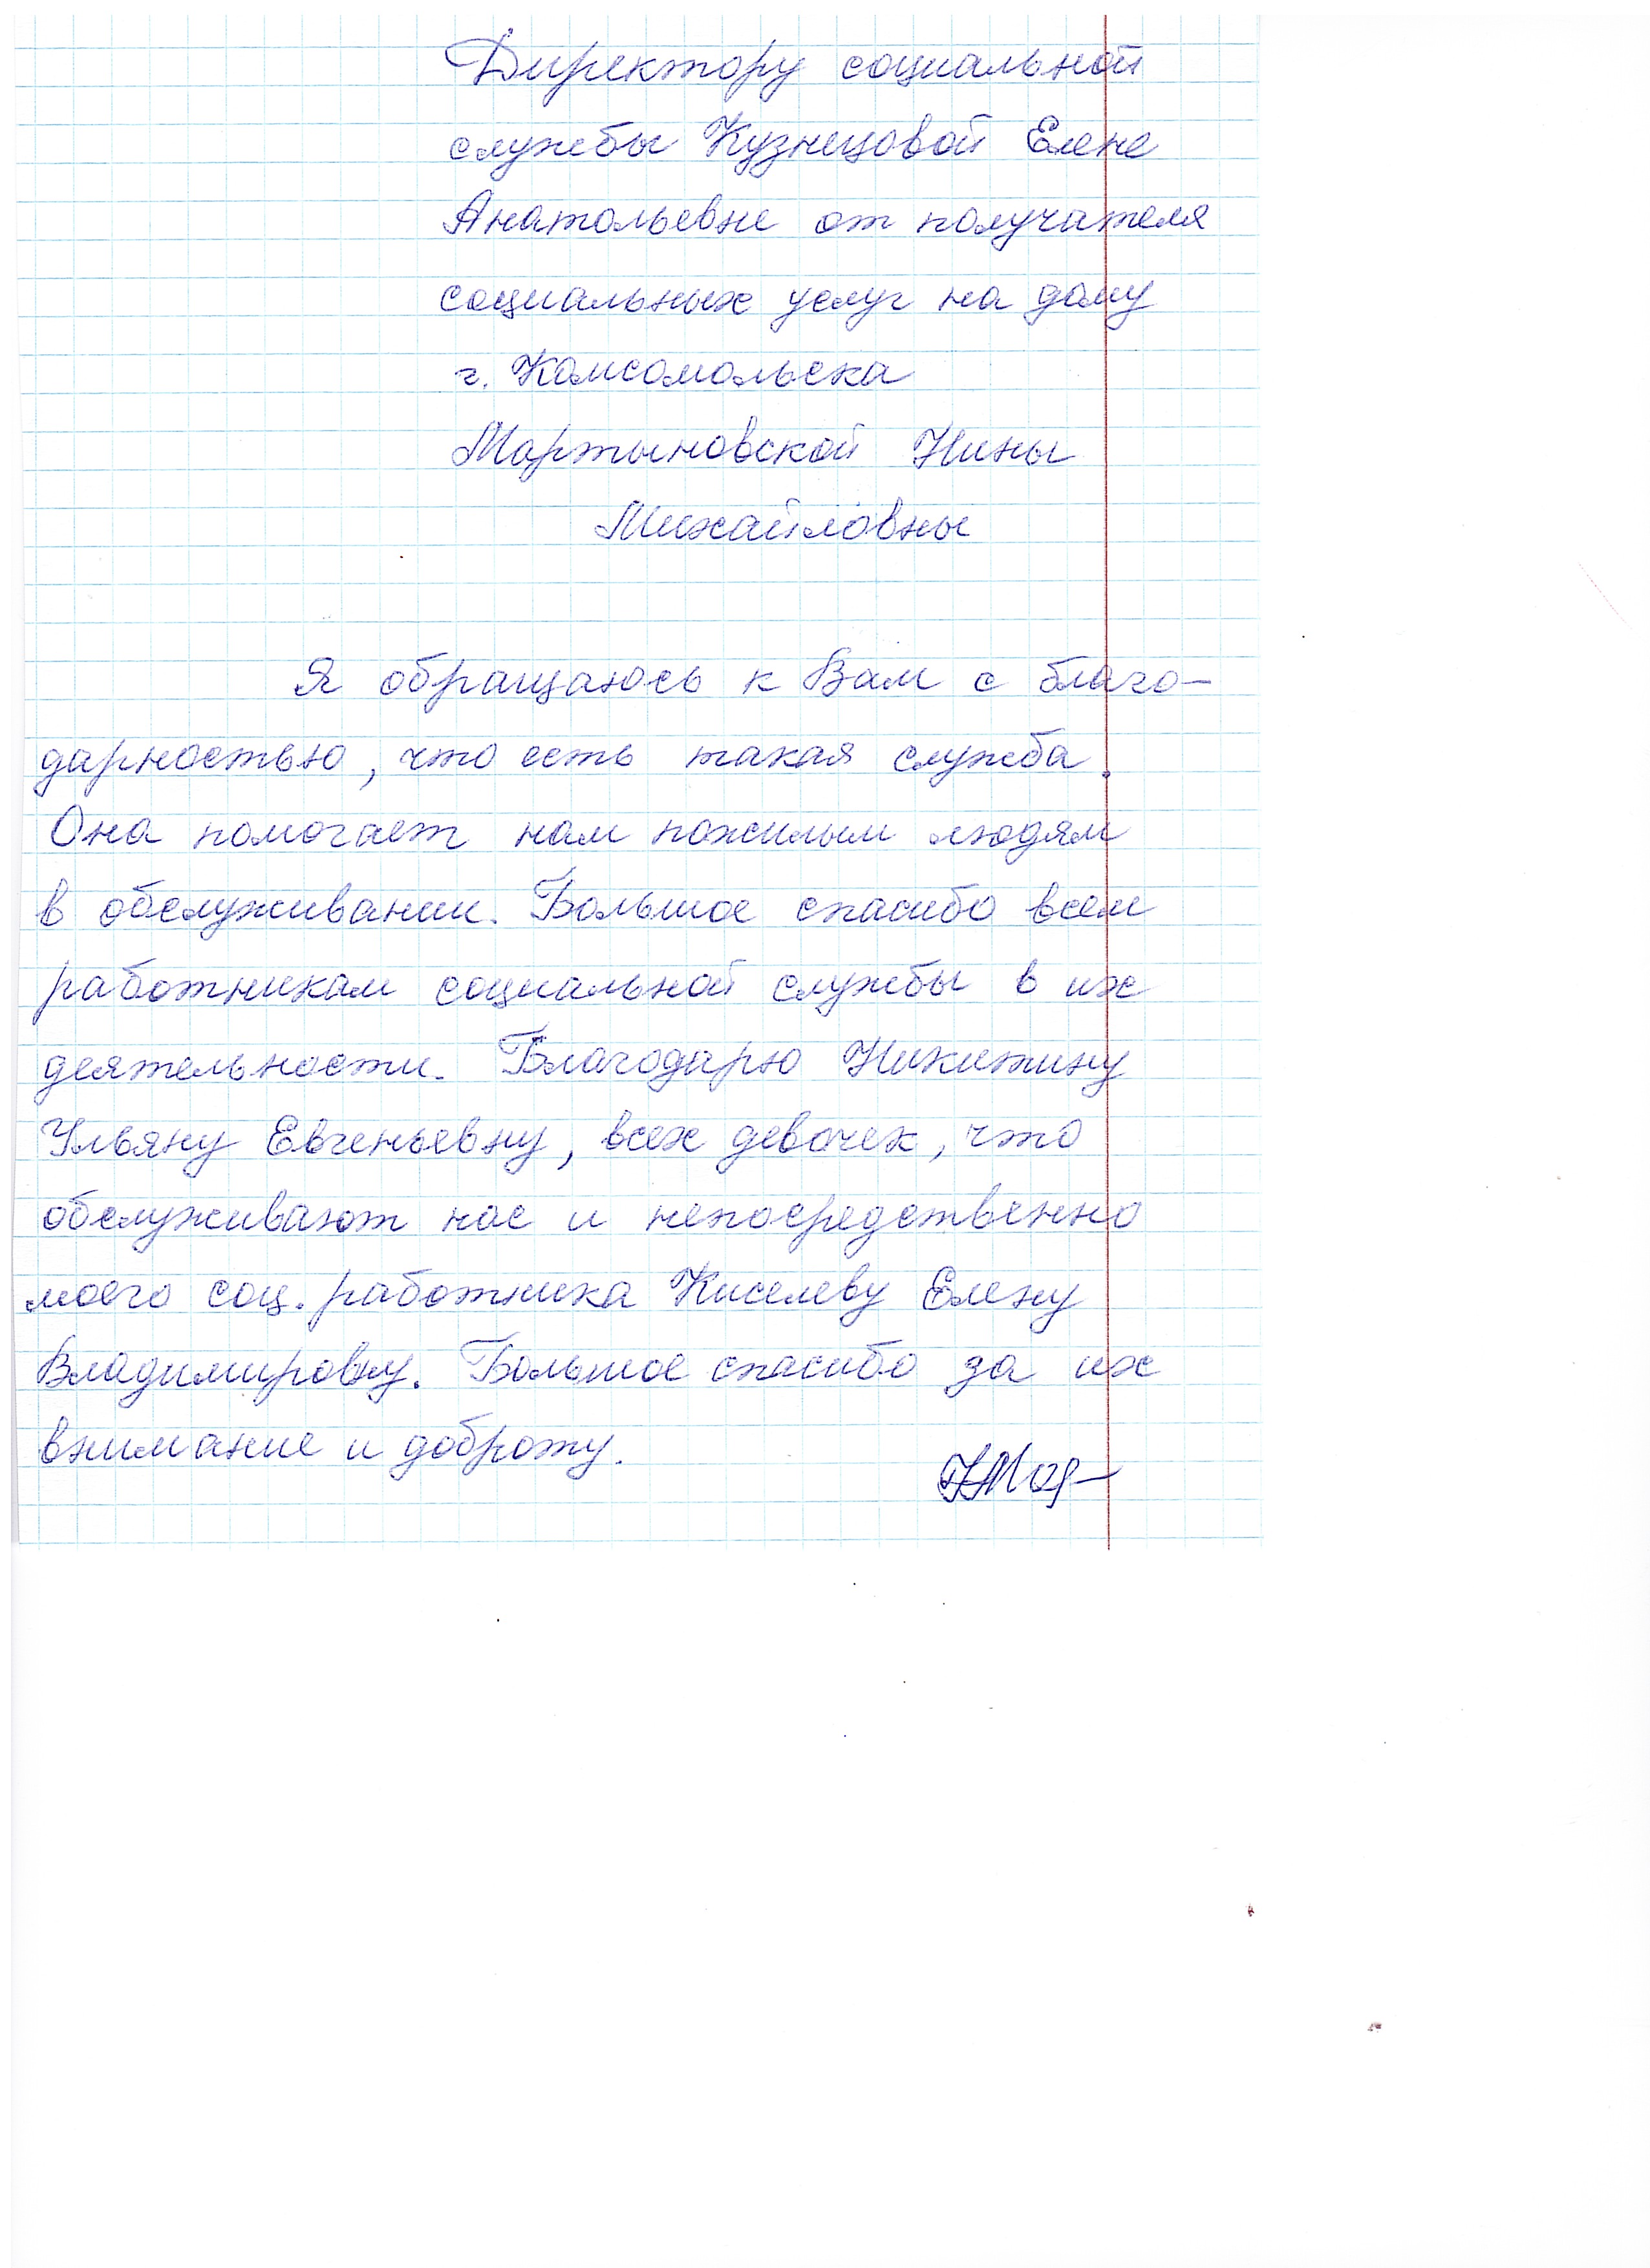 Директору социальной
службы Кузнецовой Елене
Анатольевне от получателя
социальных услуг на дому
г. Комсомольска
Мартыновской Нины
Михайловны
Я обращаюсь к Вам с благо-
дарностью, что есть такая служба.
Она помогает нам пожилым людям
в обслуживании. Большое спасибо всем
работникам социальной службы в их
деятельности. Благодарю Никитину
Ульяну Евгеньевну, всех девочек, что
обслуживают нас и непосредственно
моего соц. работника Киселеву Елену
Владимировну. Большое спасибо за их
внимание и доброту.